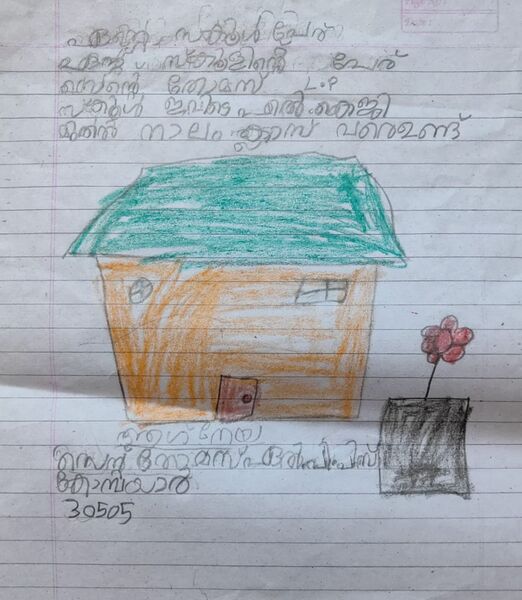 എന്റെ സ്കൂൾ പേര്
എന്റെ സ്കൂളിന്റെ പേര്
സെന്റ് തോമസ് L.P
സ്കൂൾ ഇവിടെ എൽ.കെ.ജി
മുതൽ നാലം ക്ലാസ് വരെഉണ്ട്
ആഗ്നേയ
സെന്റ് തോമസ് എൽ.പി.എസ്
കോമ്പയാർ
30505